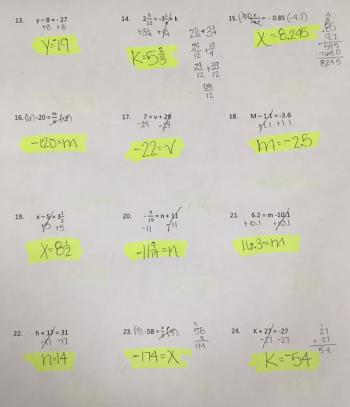 13. y – 8 = - 27
+8 +8
y=-19
14. 2 5/12 = -3 1/4 + k
+3 1/4 +3 1/4
K = 5 2/3
2 5/12 + 3 1/4
29/12 + 13/4
29/12 + 39/12
68/12
15. = - 0.85 (-9.7)
X = 8.245
.85
9.7
595
7650
8245
16. (6) -20 = m/6 (6)
-120=m
17. 7 = v + 29
-29 -29
-22=v
18. M – 1.1 = -3.6
+1.1 +1.1
m=-2.5
19. x – 5 = 3 1/2
+5 +5
X=8 1/2
20. - 9/19 = n + 11
-11 -11
-11 9/19 = n
21. 6.2 = m -10.1
+10.1 +10.1
16.3=m
22. h + 17 = 31
-17 -17
h=14
23. (3) -58 = x/3 (3)
-174=X
58
3
174
24. K + 27 = -27
-27 -27
K=-54
27
+ 27
54